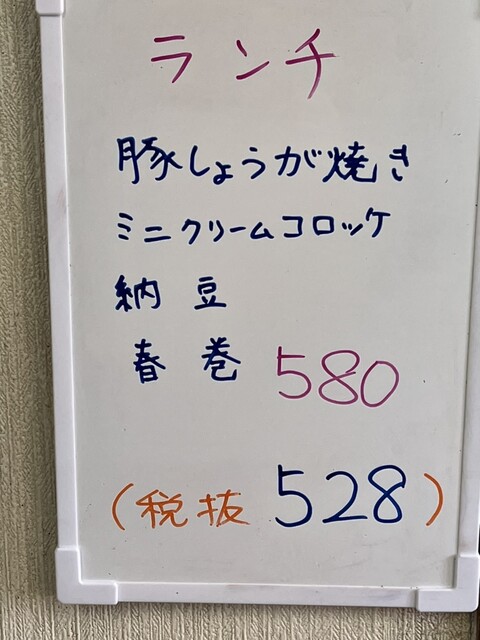 ランチ
豚しょうが焼き
ミニクリームコロッケ
納豆
春巻 580
(税抜 528)